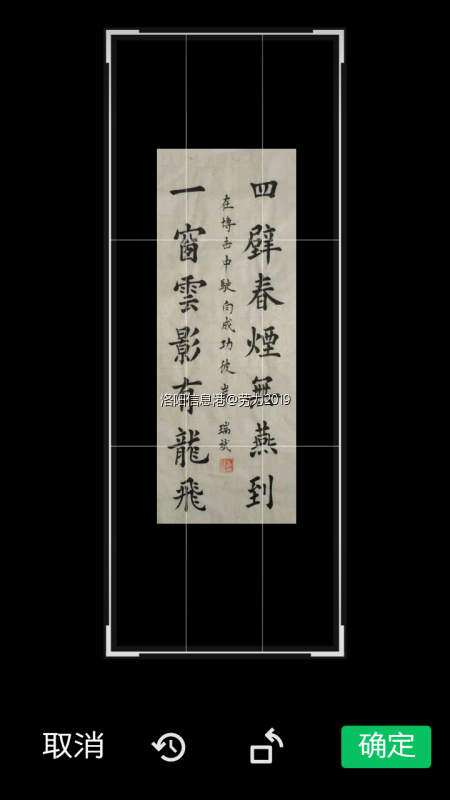 四壁春煙無燕到
在博击中駛向成功彼岸 瑞斌
一窗雲影有龍飛
洛阳信息港@劳力2019
取消
确定